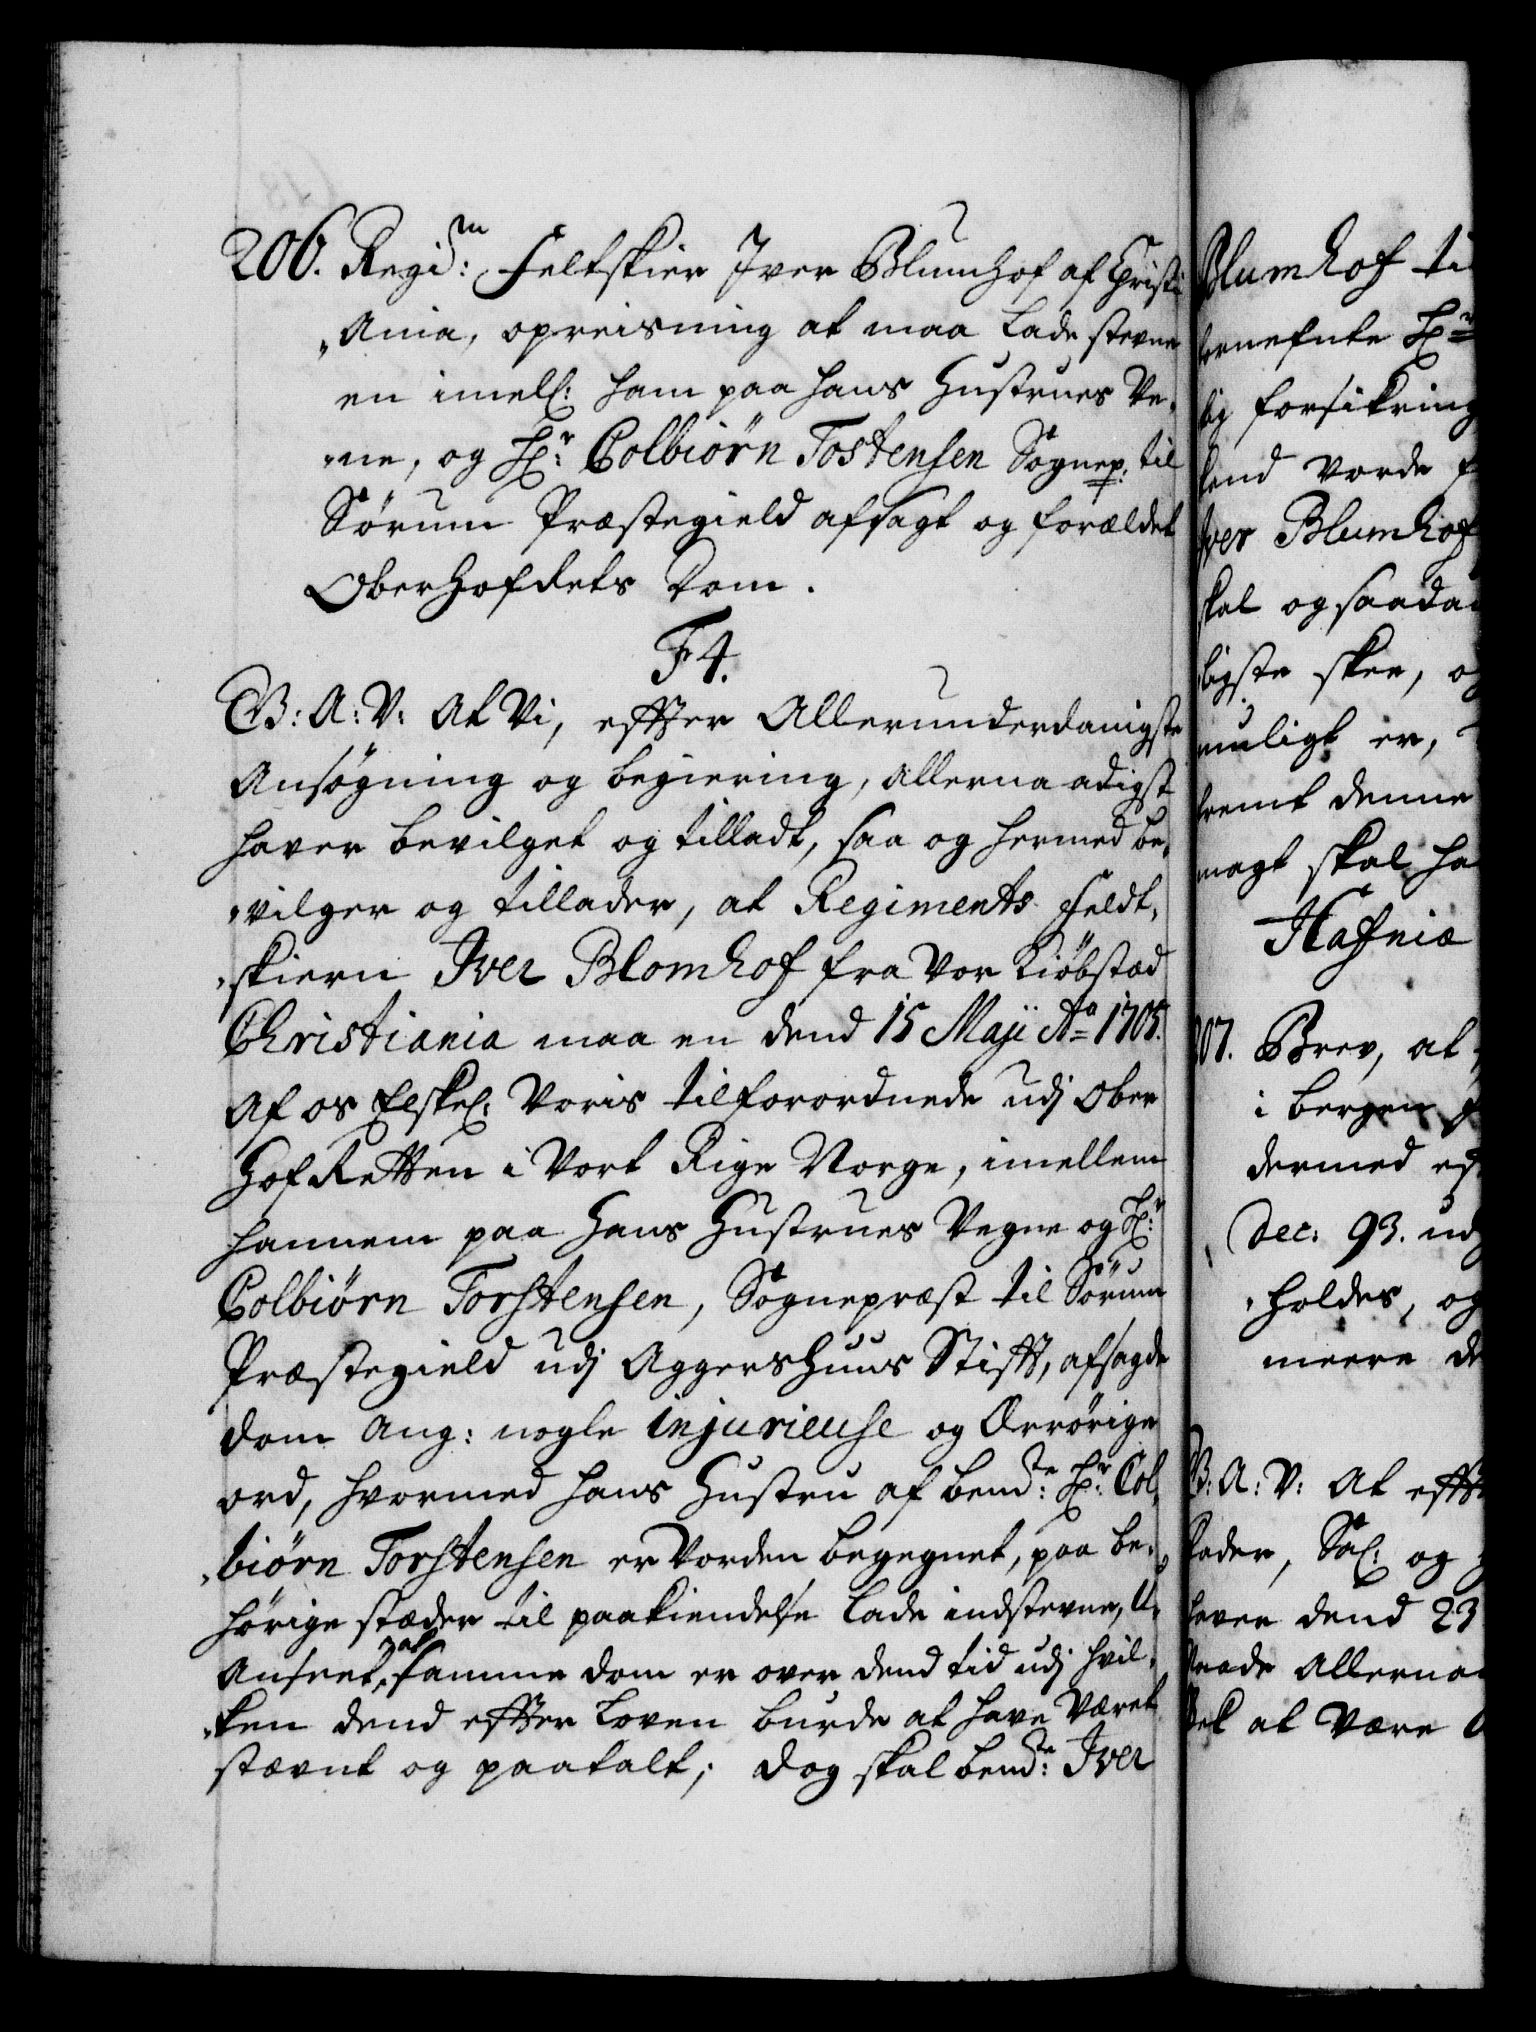 206. Regim: Feltskier Iver Blumhof af Christi
„Ania, opreisning at maa lade stevne
en imell: ham paa hans Hustrues Ve„
„ne, og Hr: Colbiørn Tostensen Sognep: til
Sørum Præstegield afsagt og forældet
OberHofdets Dom.
F4.
G: A: V: At Vi, effter Allerunderdanigste
Ansøgning og begiering, Allernaadigst
haver bevilget og tilladt, saa og hermed be„
„vilger og tillader, at Regiments Feldt„
„skiern Iver Blomhof fra Vor Kiøbstæd
Christiania maa en dend 15 Maji Ao 1705.
Af os Elskel: Voris tilforordnede udj Ober
HofRetten i Vort Rige Norge, imellem
hannem paa Hans Hustrues Vegne og Hr:
Colbiørn Torstensen, Sognepræst til Sørum
Præstegield udj AggersHuus Stifft, afsagde
dom Ang: nogle injurieuse og Ærrørige
ord, hvormed hans Hustru af bemdte: Hr: Col„
„biørn Torstensen er vorden begegnet, paa be„
hørige stæder til paakiendelse lade indstevne, U„
Anseet, at samme dom er over dend tid udj hvil„
„ken dend effter Loven burde at have Været
stævnt og paatalt; dog skal bemdte: Iver
Blumhof ti
fornefnte Hr
lig forsikring
kend vorde
Iver Blumhof
skal og saada
ligste skee, o
muligt er,
fremt denne
magt skal ha
Hafniæ
207. Brev, at
i bergen
dermed ef
Dec: 93. ud
„holdes, og
meere de
G: A: V: At efft
Fader, Sal: og
haver dend 23
Naade Allerna
Bek at Være